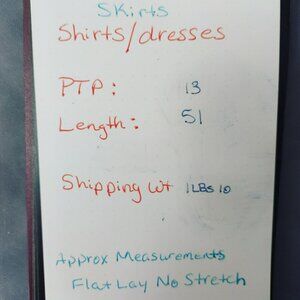 Skirts
Shirts/dresses
PTP: 13
Length: 51
Shipping Wt 1LBS 10
Approx Measurements
Flat Lay No Stretch